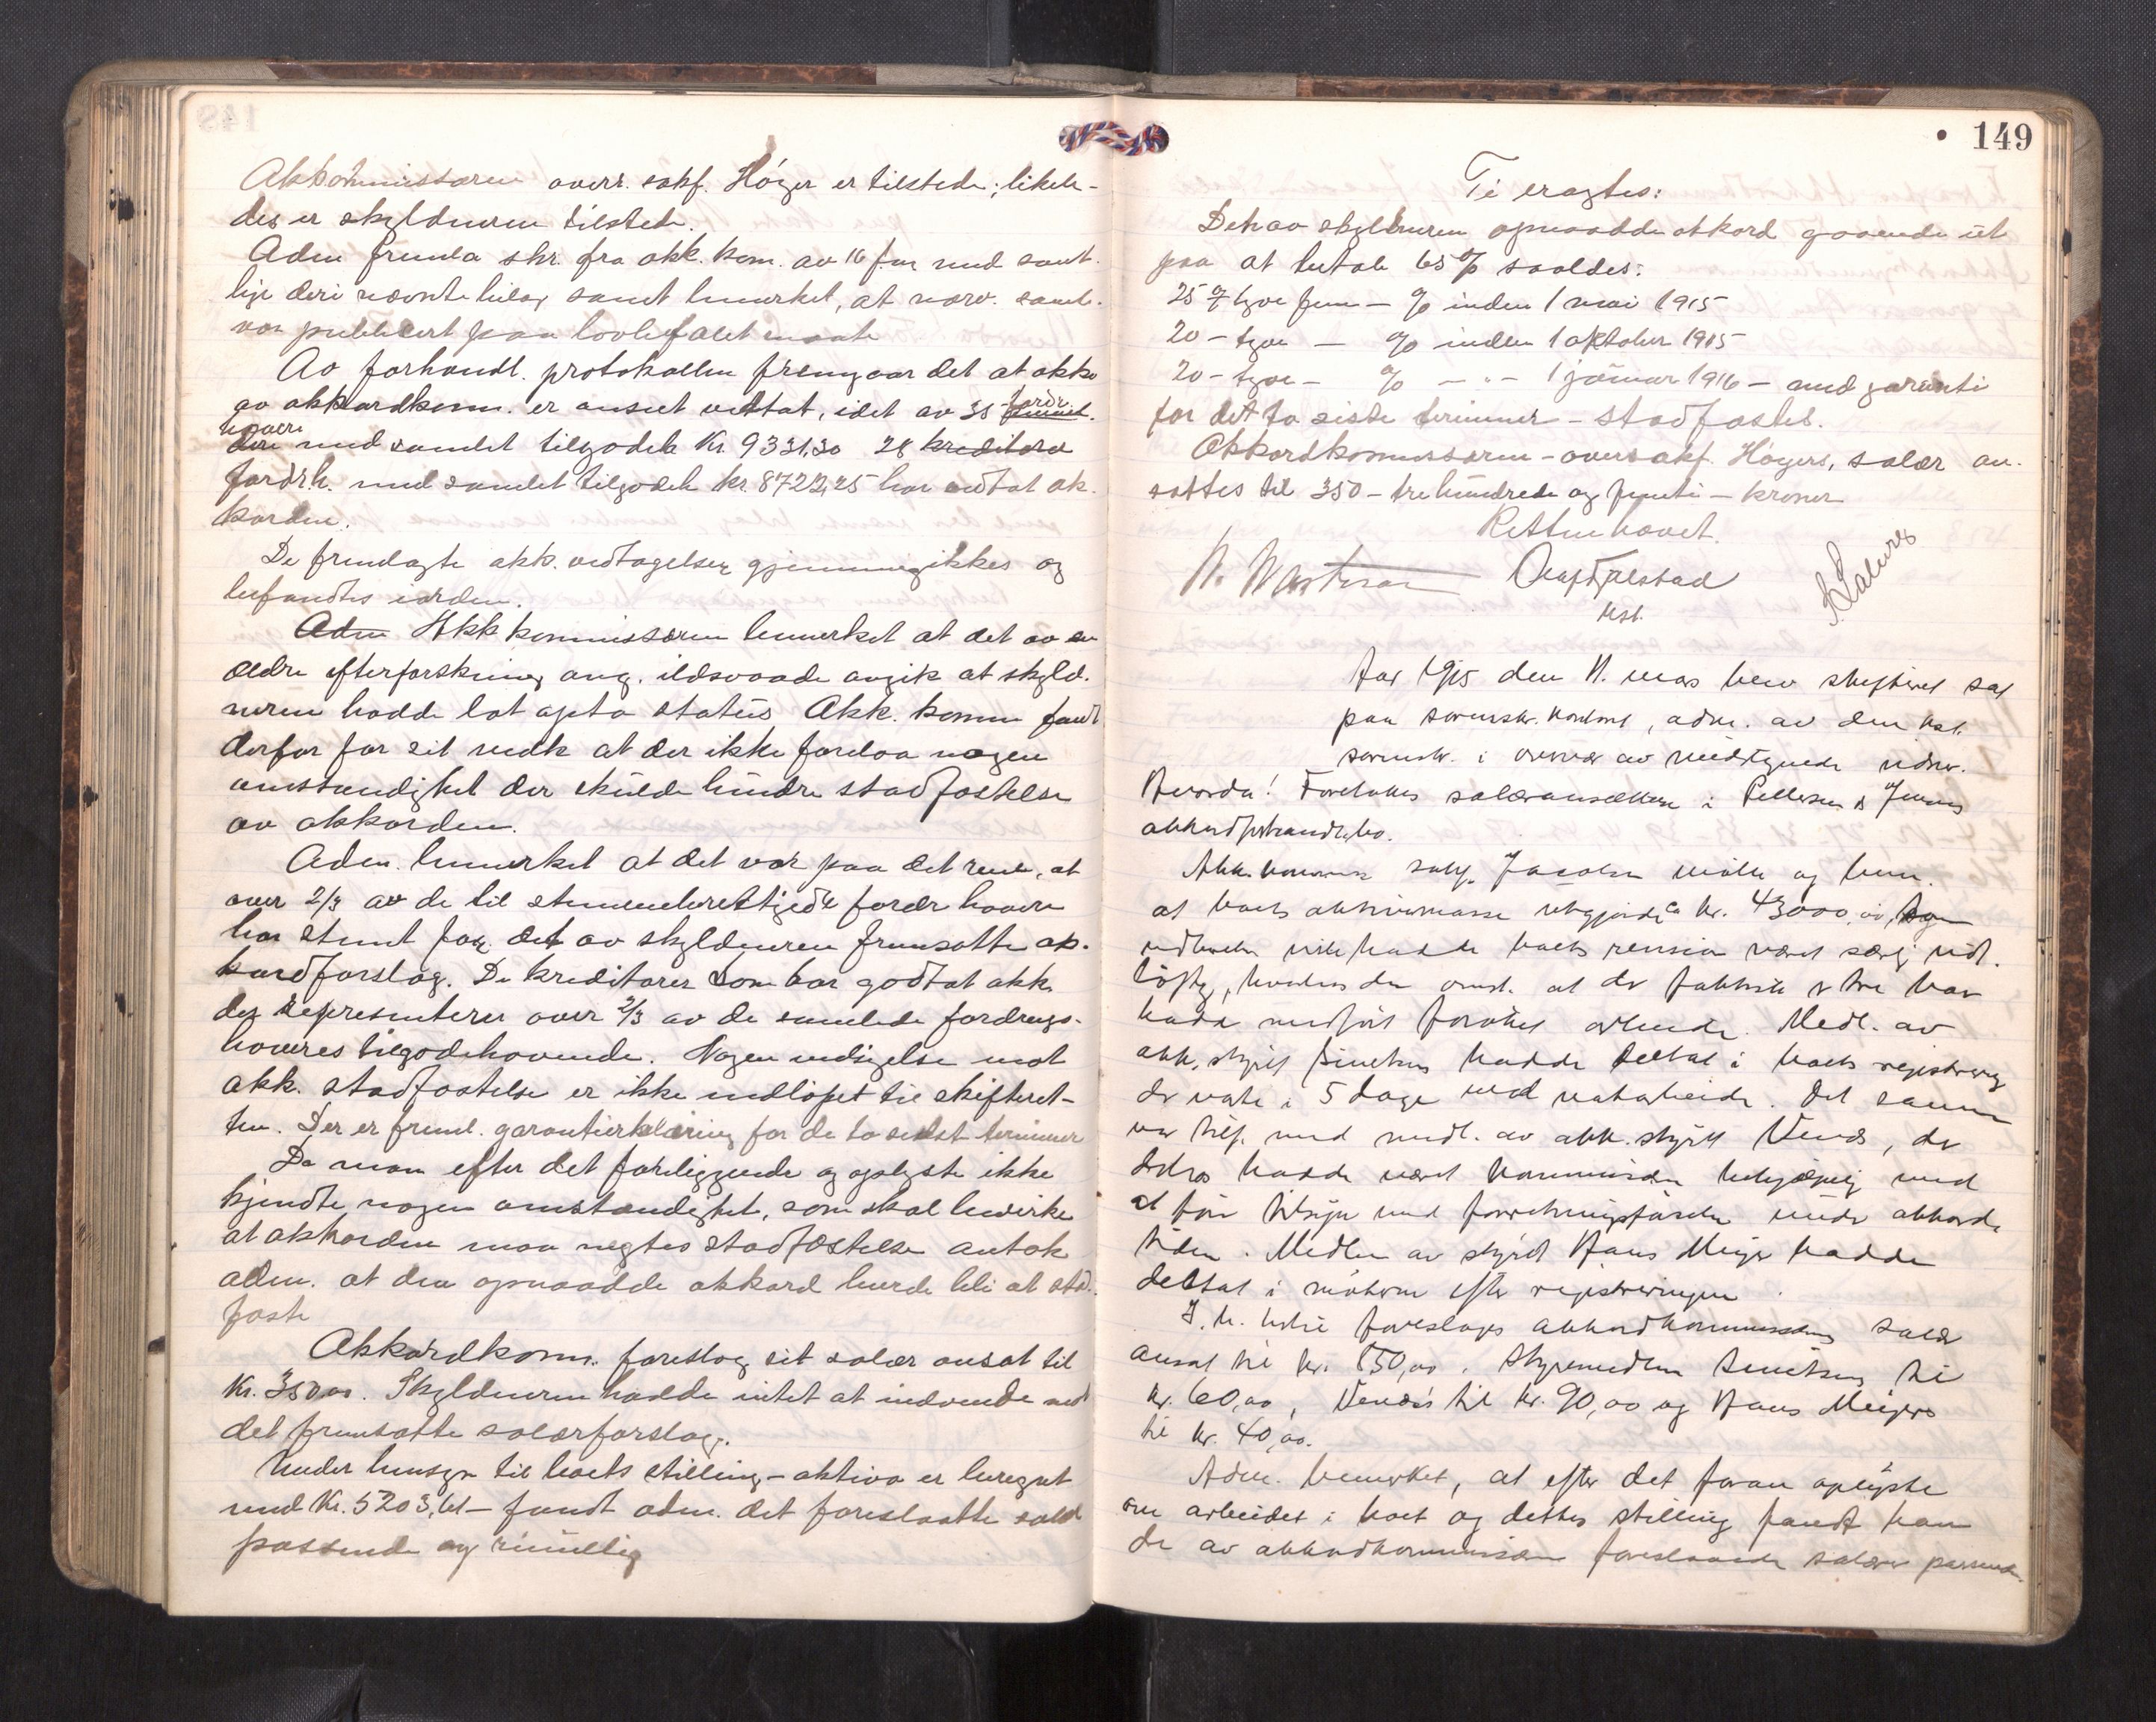 Akkommissæren overr. sakf. Höyer er tilstede; likele-
des er skyldneren tilstede.
Adm fremla skr. fra akk. kom. av 16 f.m. med samt-
lige deri nævnte bilag samt bemerket, at nærv. saml.
var publicert paa lovbefalet maate
Av forhandl. protokollen fremgaar det at akko
av akkordkom. er anseet vedtat, idet av 35 fordr
havere med samlet tilgodeh Kr. 9331,30 28 kreditorer
fordr.h. med samlet tilgodeh kr. 8722,25 har vedtat ak-
korden.
De fremlagte akk. vedtagelser gjennemgikkes og
befandtes iorden.
Adm Akk kommissæren bemerket at det av en
ældre efterforskning ang. ildsvaade avgik at skyld-
neren hadde lat opta status Akk. komm fandt
derfor for sit vedk at der ikke forelaa nogen
omstændighet der skulde hindre stadfæstelse
av akkorden.
Adm. bemerket at det var paa det rene, at
over 2/3 av de til stemmeberettigede fordr havere
har stemt for det av skyldneren fremsatte ak-
kordforslag. De kreditorer som har godtat akk.
den representerer over 2/3 av de samlede fordrings-
haveres tilgodehavende. Nogen indsigelse mot
akk. stadfæstelse er ikke indløpet til skifteret-
ten. Der er freml. garantierklæring for de to sidste terminer
Da man efter det foreliggende og oplyste ikke
kjendte nogen omstændighet, som skal bevirke
at akkorden maa negtes stadfæstelse antok
adm. at den opnaadde akkord burde bli at stad-
fæste
Akkordkom. foreslog sit salær ansat til
Kr. 350,00. Skyldneren hadde intet at indvende mot
det fremsatte salærforslag.
Under hensyn til boets stilling – aktiva er beregnet
med Kr. 5203,61 – fandt adm. det foreslaatte salær
passende og rimelig
149
Ti eragtes:
Den av skyldneren opnaadde akkord gaaende ut
paa at betale 65 % saaldes:
25 – tyve fem – % inden 1 mai 1915
20 – tyve – % inden 1 oktober 1915
20 – tyve – % – " – 1 januar 1916 – med garanti
for det to siste terminer – stadfæstes.
Akkordkommissæren – overrsakf. Höyers, salær an-
sættes til 350 – trehundrede og femti – kroner
Retten hævet.
Olaf Fjelstad
kst.
Aar 1915 den 11. mars blev skifteret sat
paa sorenskr. kontoret, adm. av den kst.
sorenskr. i overvær av undtegnede vidner.
Hvorda! Foretokes salæransættelse i Pettersen & Jensens
akkordforhandl.bo.
Akk. kommissær sakf. Jacobsen møtte og bem.
at boets aktivmasse utgjorde ca kr. 43000,00,
endvidere hadde boets revision været særlig vidt-
løftig, hvortil den omst. at der fabrikk i boe har
hadde medført forøket arbeide. Medl. av
akk. styret hadde deltat i boets registrering
der varte i 5 dage med natarbeide. Det samme
var tilf. med medl. av akk. styret Venås, der
dels hadde været kommissæren behjælpelig med
at føre tilsyn med forretningsførselen under akkords
tiden. Medlem av styret Hans Meyer hadde
deltat i møterne efter registreringen.
I h. t. foreslages akkordkommissærens salær
ansat til kr. 850,00. Styremedlem til
kr. 60,00, Venås's til kr. 90,00 og Hans Meyers
til kr. 40,00.
Adm. bemerket, at efter det foran oplyste
om arbeidet i boet og dettes stilling fandt han
de av akkordkommissæren foreslaaede salærer passende.